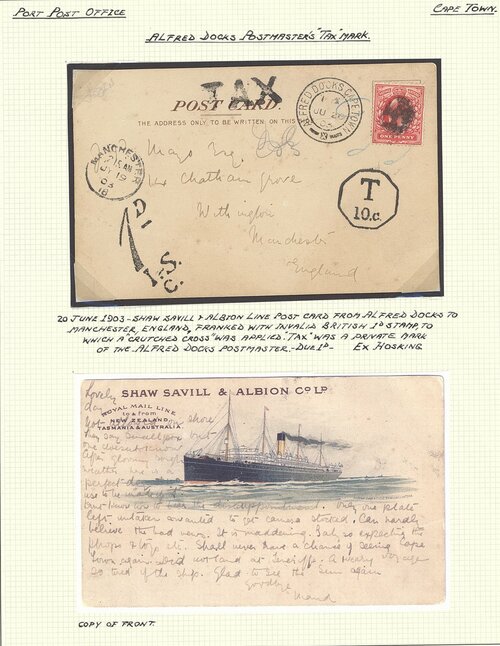 PORT POST OFFICE
CAPE TOWN.
ALFRED DOCKS POSTMASTER'S "TAX" MARK.
TAX
POST CARD.
THE ADDRESS ONLY TO BE WRITTEN ON THIS
ALFRED DOCKS CAPE TOWN
JU 20
03
ONE PENNY
MANCHESTER
JY 19
03
18
Mayo Esq.
Chatham Grove
Withington
Manchester
England
T
10.c.
1D
20 JUNE 1903 - SHAW SAVILL & ALBION LINE POST CARD FROM ALFRED DOCKS TO
MANCHESTER, ENGLAND, FRANKED WITH INVALID BRITISH 1D STAMP, TO
WHICH A "CRUTCHED CROSS" WAS APPLIED. "TAX" WAS A PRIVATE MARK
OF THE ALFRED DOCKS POSTMASTER. - DUE 1D - EX HOSKING
SHAW SAVILL & ALBION CO. LD
ROYAL MAIL LINE
to & from
NEW ZEALAND,
TASMANIA & AUSTRALIA
Lovely
day
shore
They say Smallpox but
one doesn't know
After glorious
weather we in a
perfect day
the disappointment. Only one plate
left untaken wanted to get camera stocked. Can hardly
believe the bad news. It is maddening. I als so expecting the
shops & to go etc. Shall never have a chance of seeing Cape
Town again. Won't land at Teneriffe. A weary voyage
so tired of the ship. Glad to see the sun again
Goodbye
Maud
COPY OF FRONT.